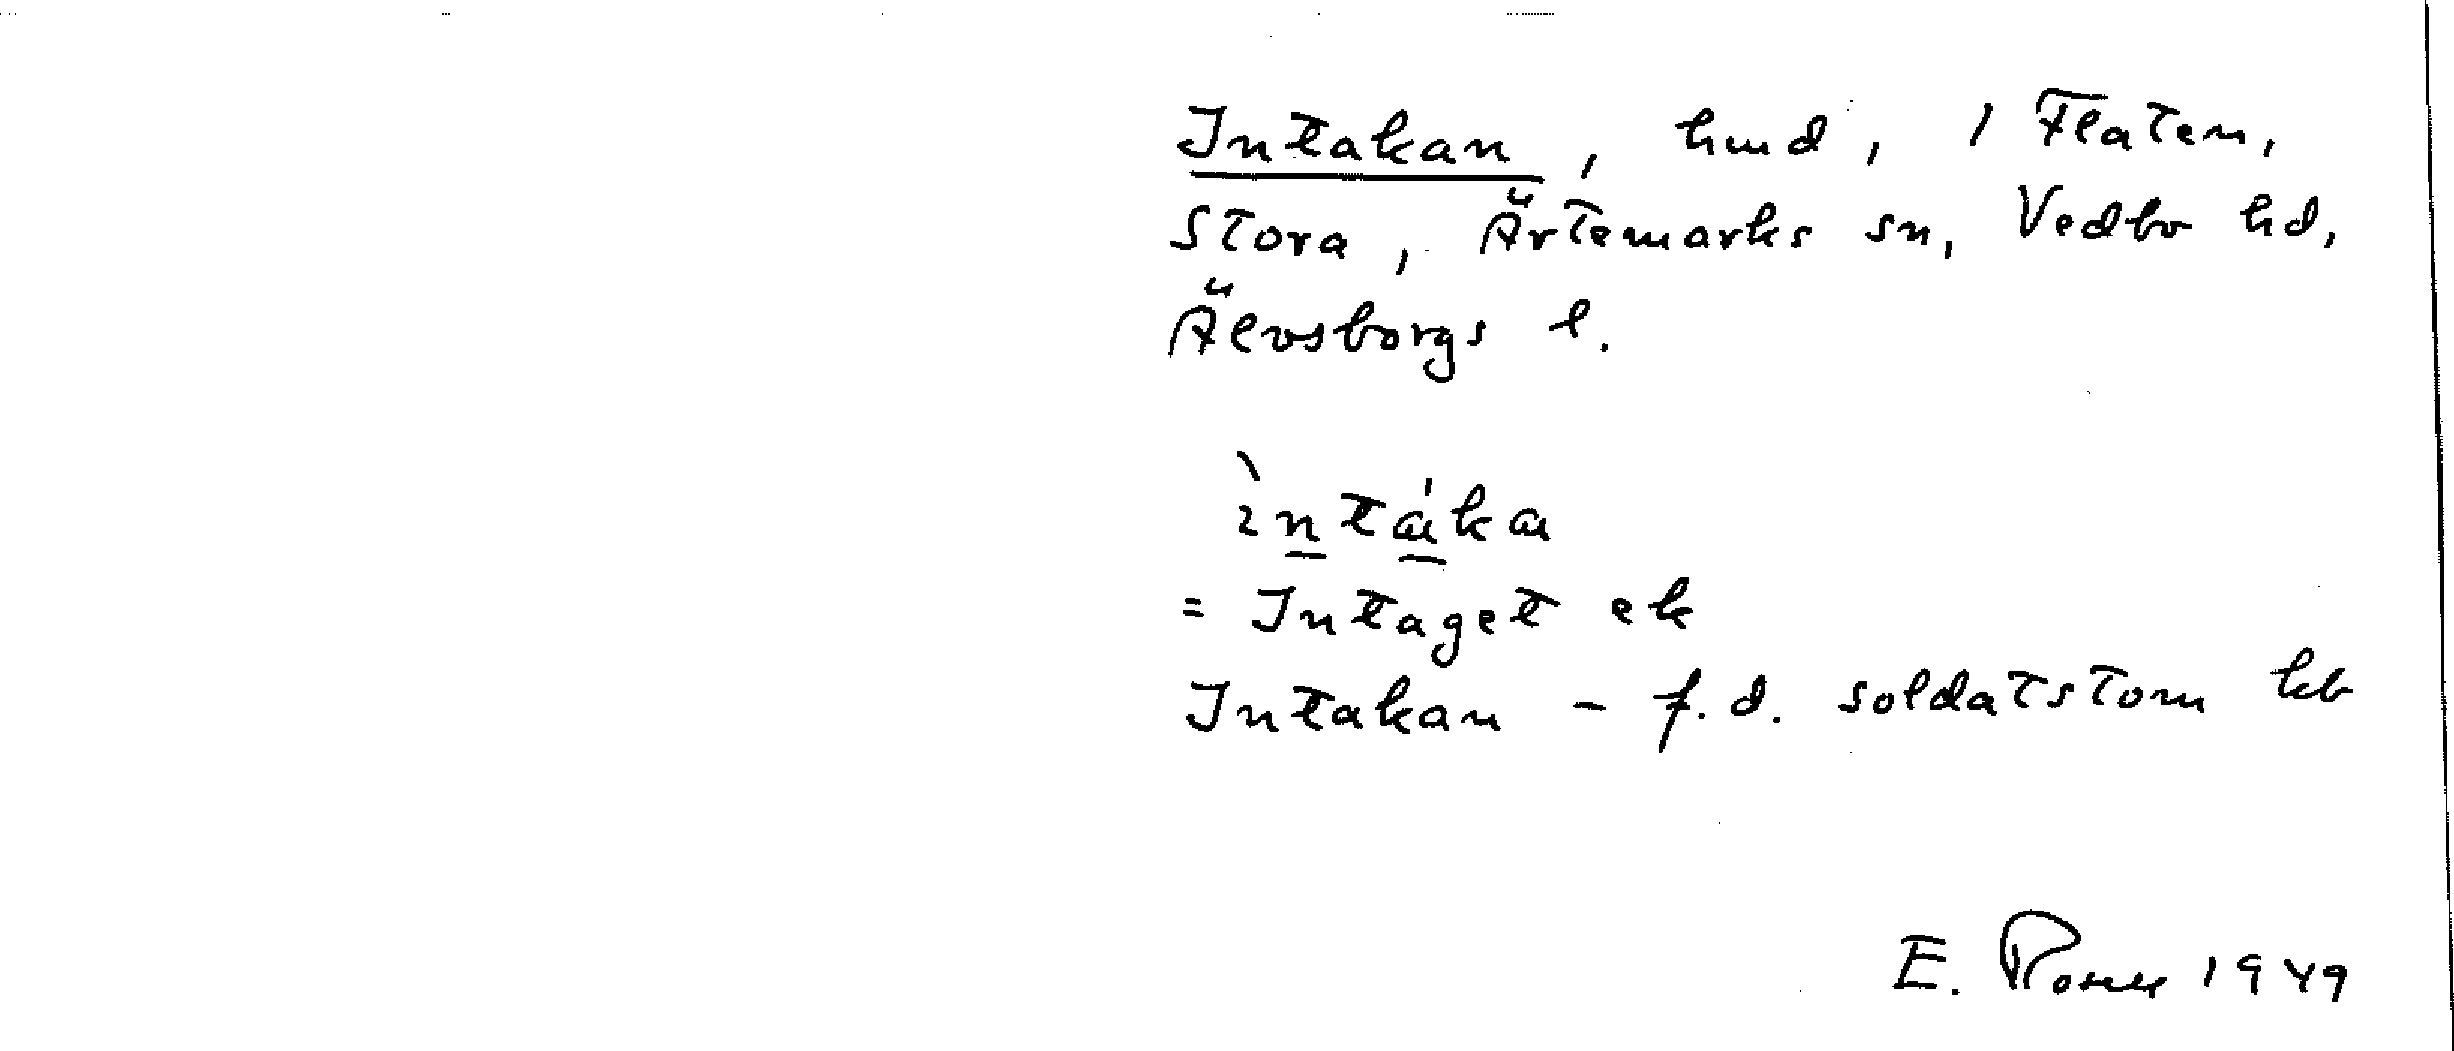 Intakan, hmd, 1 Flaten,
Stora, Ärtemarks sn, Vedbo hd,
Älvsborgs l.
ìntáka
= Intaget ek
Intakan - f.d. soldatstom kb
E. 1949